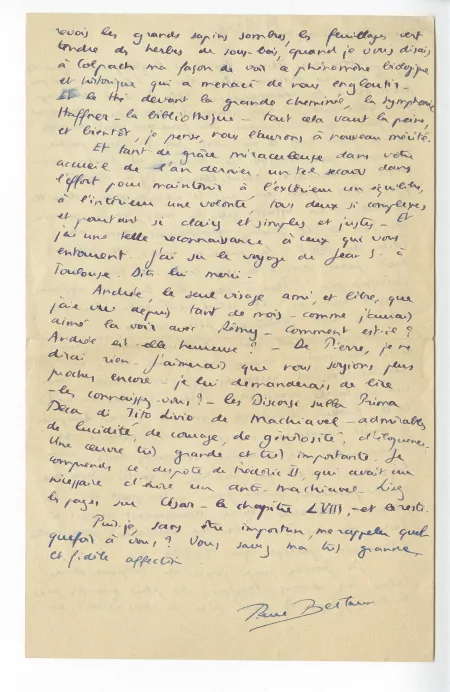 revois les grands sapins sombres, les feuillages vert
tendre des herbes de sous-bois, quand je vous disais
à Colpach ma façon de voir ce phénomène biologique
et historique qui a menacé de nous engloutir -
Et le thé devant la grande cheminée, la symphonie
Haffner - la bibliothèque - tout cela vaut la peine,
et bientôt, je pense, nous l'aurons à nouveau mérité.
Et tant de grâce miraculeuse dans votre
accueil de l'an dernier. un tel secours dans
l'effort pour maintenir à l'extérieur un équilibre,
à l'intérieur une volonté, tous deux si complexes
et pourtant si clairs et simples et justes - Et
j'ai une telle reconnaissance à ceux qui vous
entourent. J'ai su le voyage de Jean S. à
Toulouse. Dites lui merci.
Andrée, le seul visage ami, et libre, que
j'aie vu depuis tant de mois - comme j'aurais
aimé la voir avec Rémy - Comment est-il ?
Andrée est-elle heureuse ? - De Pierre, je ne
dirai rien. J'aimerais que nous soyions plus
proches encore. je lui demanderais de lire
- les connaissez-vous ? - les Discorsi sulla Prima
Deca di Tito Livio de Machiavel - admirables
de lucidité, de courage, de générosité, d'éloquence.
Une œuvre très grande et très importante. Je
comprends ce despote de Frédéric II, qui avait cru
nécessaire d'écrire un anti-machiavel. Lisez
les pages sur César - le chapitre LVIII, - et le reste.
Puis-je, sans être importun, me rappeler quel-
quefois à vous ? Vous savez ma très grande
et fidèle affection